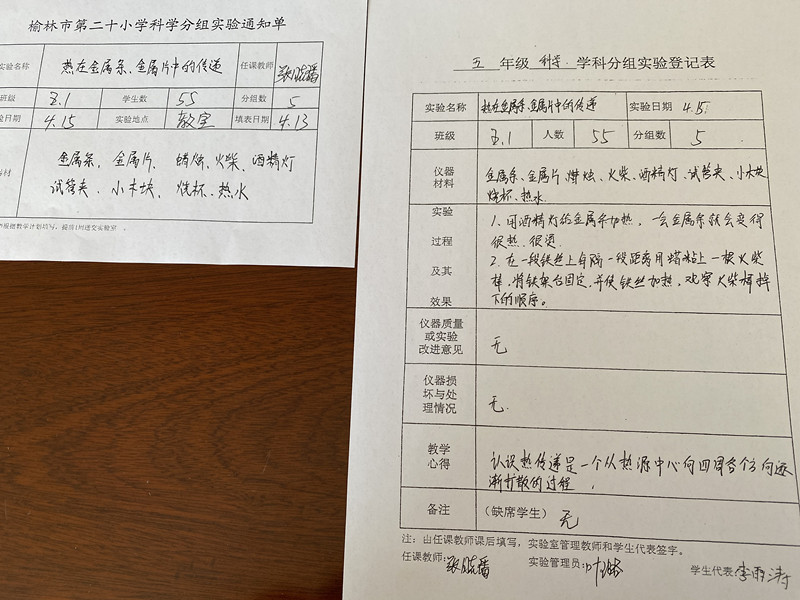 榆林市第二十小学科学分组实验通知单
实验名称 热在金属条、金属片中的传递 任课教师
班级 五.1 学生数 55 分组数 5
验日期 4.15 实验地点 教室 填表日期 4.13
器材 金属条, 金属片、蜡烛、火柴、酒精灯
试管夹、小木块, 烧杯、热水
根据教学计划填写，提前1周送交实验室 。
五 年级 科学. 学科分组实验登记表
实验名称 热在金属条、金属片中的传递 实验日期 4.15.
班级 五.1 人数 55 分组数 5
仪器材料 金属条、金属片、蜡烛、火柴、酒精灯、试管夹、小木块
烧杯、热水.
实验过程及其效果 1、用酒精灯给金属条加热，一会金属条就会变得
很热、很烫.
2、在一段铁丝上每隔一段距离用蜡粘上一根火柴
棒，将铁架台固定，并使铁丝加热，观察火柴棒掉
下的顺序。
仪器质量或实验改进意见 无
仪器损坏与处理情况 无.
教学心得 认识热传递是一个从热源中心向四周各个方向逐
渐扩散的过程.
备注 （缺席学生） 无
注：由任课教师课后填写，实验室管理教师和学生代表签字。
任课教师: 实验管理员: 学生代表: 李雨涛